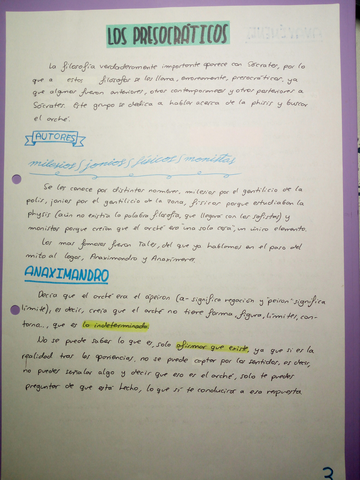 LOS PRESOCRÁTICOS
La filosofía verdaderamente importante aparece con Sócrates, por lo
que a estos filósofos se les llama, erróneamente, presocráticos, ya
que algunos fueron anteriores, otros contemporáneos y otros posteriores a
Sócrates. Este grupo se dedica a hablar acerca de la phisis y buscar
el arché.
AUTORES
milesios/jonios/físicos/monistas
Se les conoce por distintos nombres, milesios por el gentilicio de la
polis, jonios por el gentilicio de la zona, físicos porque estudiaban la
physis (aún no existía la palabra filosofía, que llegaría con los sofistas) y
monistas porque creían que el arché era una sola cosa, un único elemento.
Los más famosos fueron Tales, del que ya hablamos en el paso del
mito al logos, Anaximandro y Anaxímenes.
ANAXIMANDRO
Decía que el arché era el ápeiron (a- significa negación y "peiron" significa
límite), es decir, creía que el arché no tiene forma, figura, límites, con-
torno..., que es lo indeterminado.
No se puede saber lo que es, solo afirmar que existe, ya que si es la
realidad tras las apariencias, no se puede captar por los sentidos, es decir,
no puedes señalar algo y decir que eso es el arché, solo te puedes
preguntar de que está hecho, lo que sí te conduciría a esa respuesta.
3